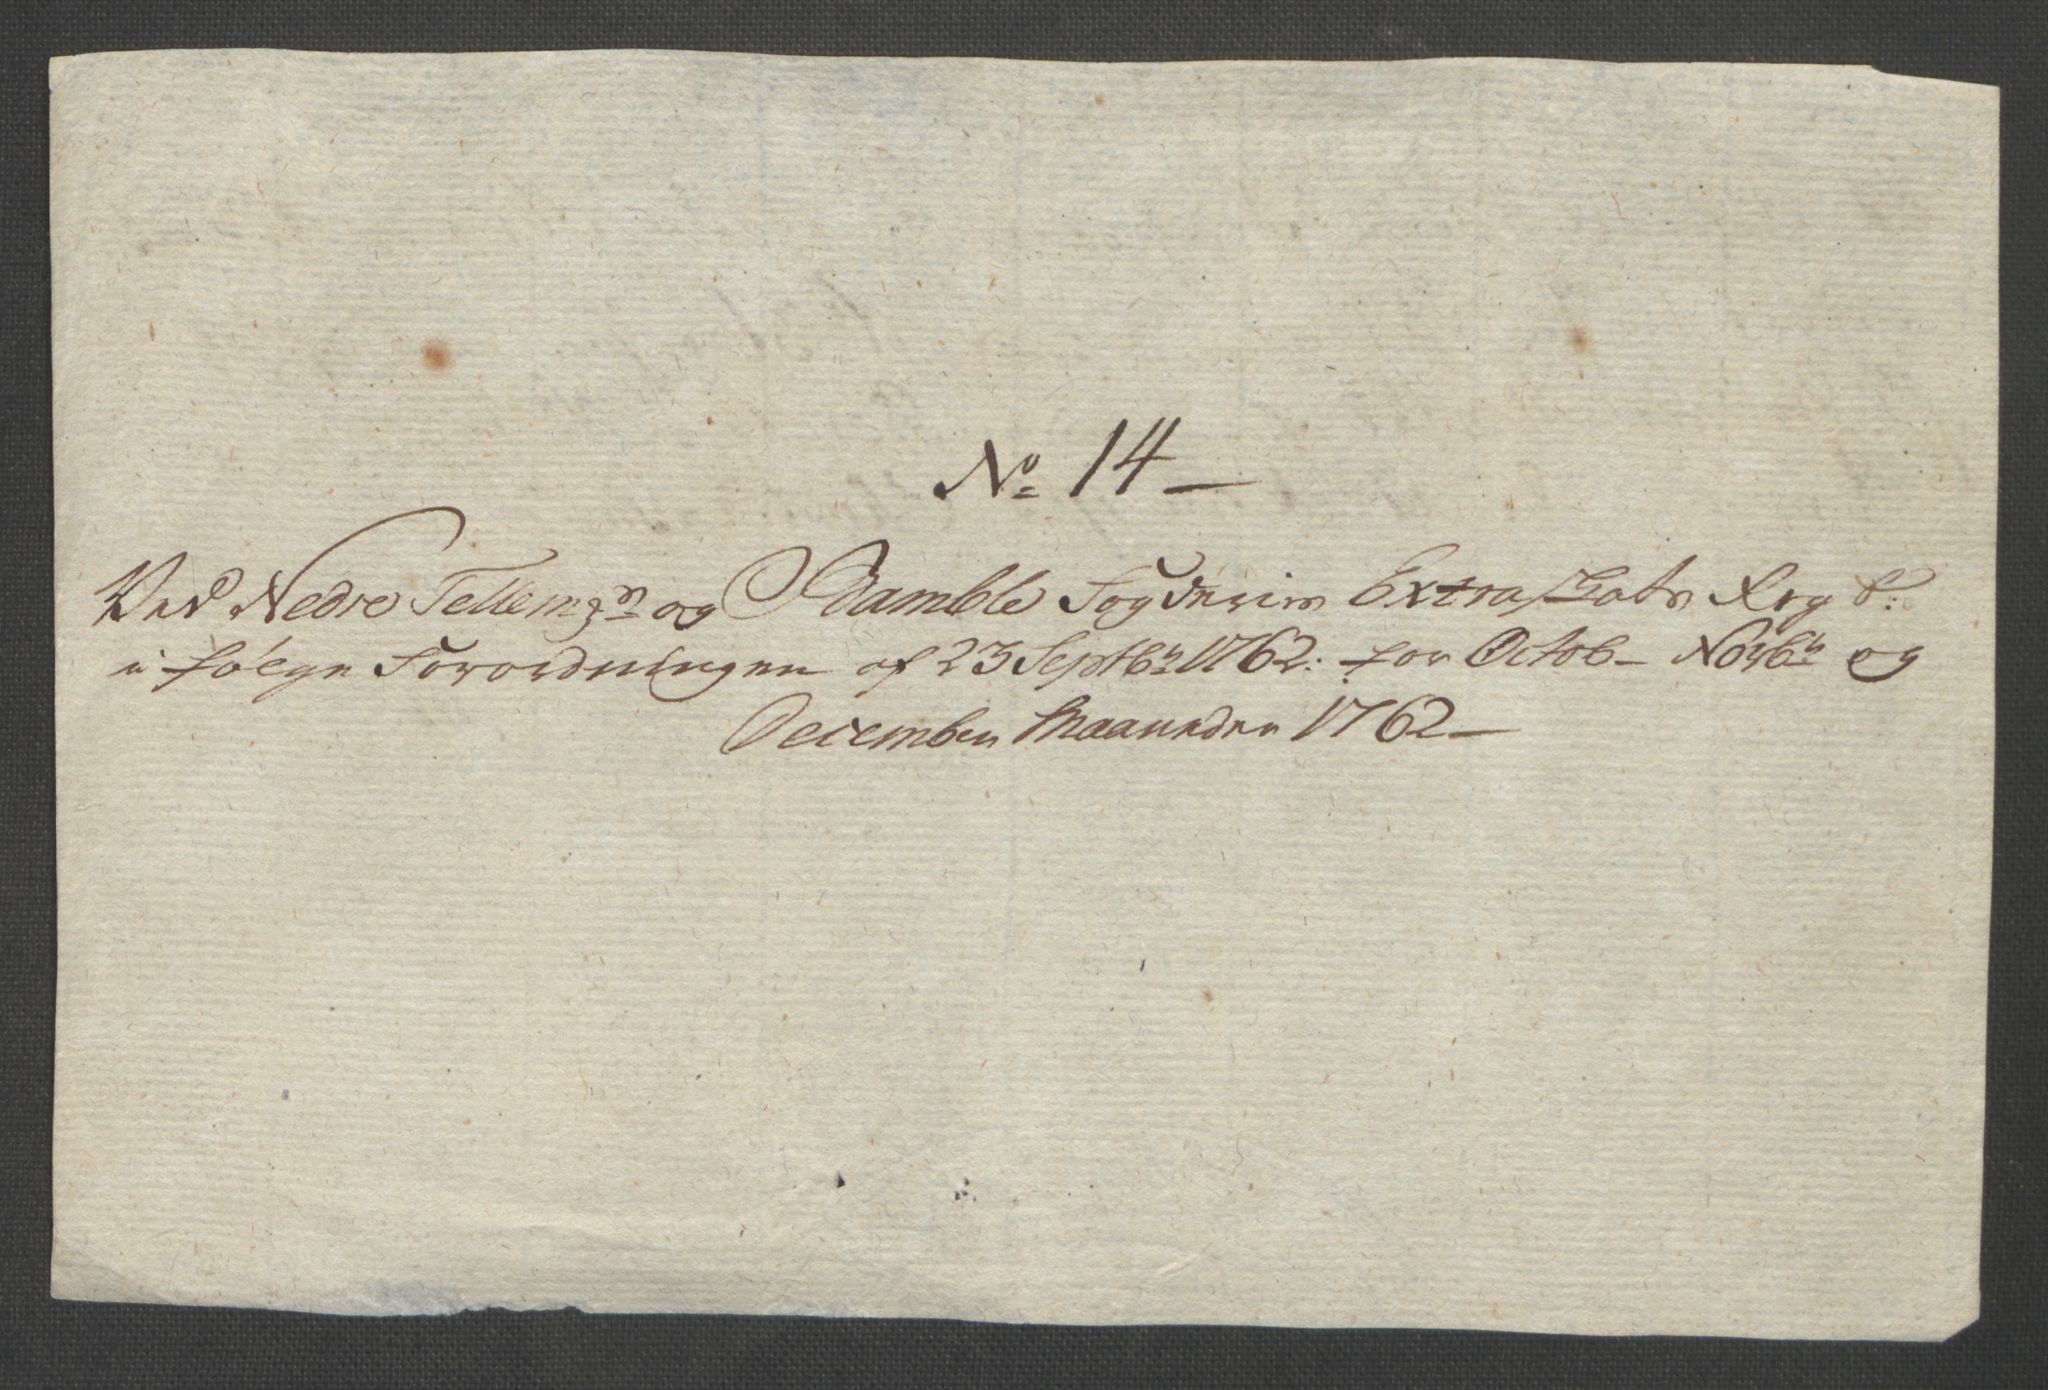 No 14
Ved Nedre Tellemn og Bamble Fogderies Extraskats Regsk:
i følge Forordningen af 23 Septbr 1762. for Octob Novbr og
December Maaneder 1762